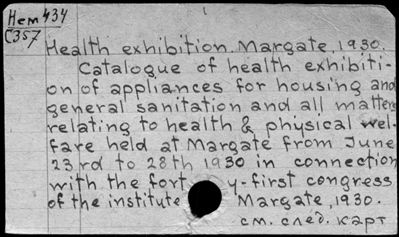 Нем 434
C357
Health exhibition. Margate, 1930.
Catalogue of health exhibiti-
on of appliances for housing and
general sanitation and all matters
relating to health & physical wel-
fare held at Margate from June
23rd to 28th 1930 in connection
with the fort y-first congress
of the institute Margate, 1930.
см. след. карт